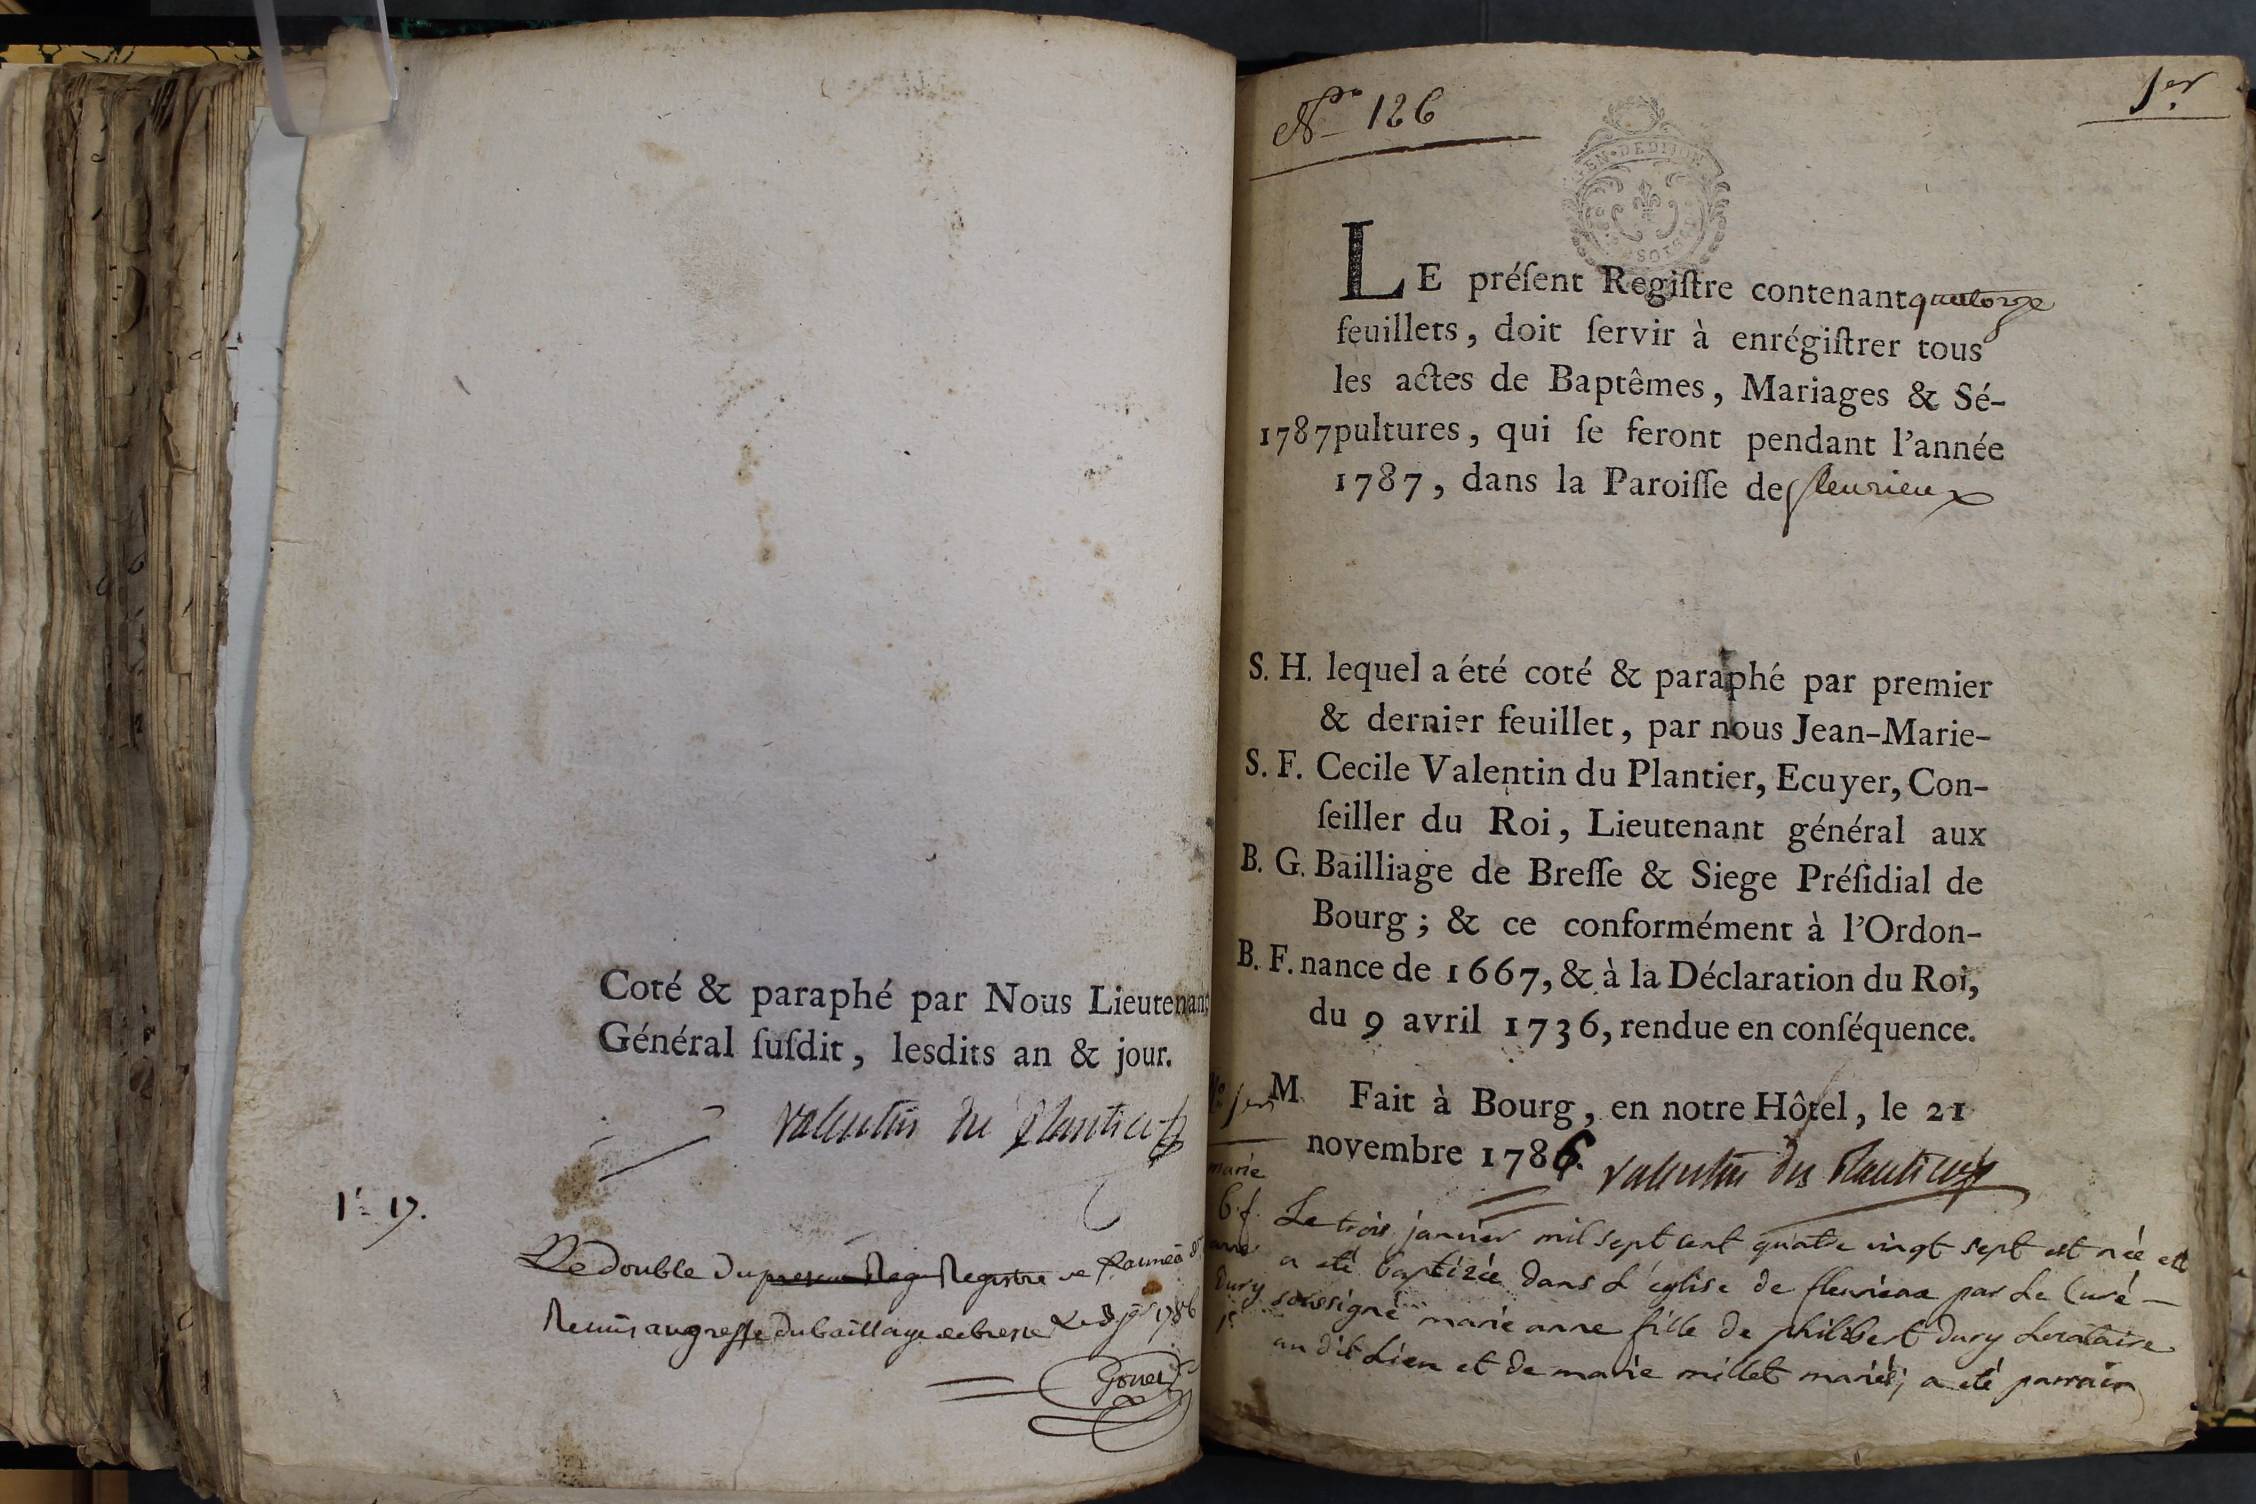 Coté & paraphé par Nous Lieutenant
Général ſuſdit, lesdits an & jour.
Valentin du Plantier
1. 17.
Le double du present Reg Registre
Remis au greffe du bailliage de bresse Le 8 1786
Gonet
No 126
1er
GEN·DEDIJON
LE préſent Regiſtre contenant quatorze
feuillets, doit ſervir à enrégiſtrer tous
les actes de Baptêmes, Mariages & Sé-
1787 pultures, qui ſe feront pendant l'année
1787, dans la Paroiſſe de fleurieux
S. H. lequel a été coté & paraphé par premier
& dernier feuillet, par nous Jean-Marie-
S. F. Cecile Valentin du Plantier, Ecuyer, Con-
ſeiller du Roi, Lieutenant général aux
B. G. Bailliage de Breſſe & Siege Préſidial de
Bourg ; & ce conformément à l'Ordon-
B. F. nance de 1667, & à la Déclaration du Roi,
du 9 avril 1736, rendue en conſéquence.
M. Fait à Bourg, en notre Hôtel, le 21
novembre 1786. Valentin du Plantier
marie
b. f.
anne
Dury
Le trois janvier mil sept cent quatre vingt sept est née et
a eté baptizée dans L'église de fleurieux par Le Curé —
soussigné marie anne fille de philibert Dury Locataire
au dit Lieu et de marie millet mariés; a eté parrain